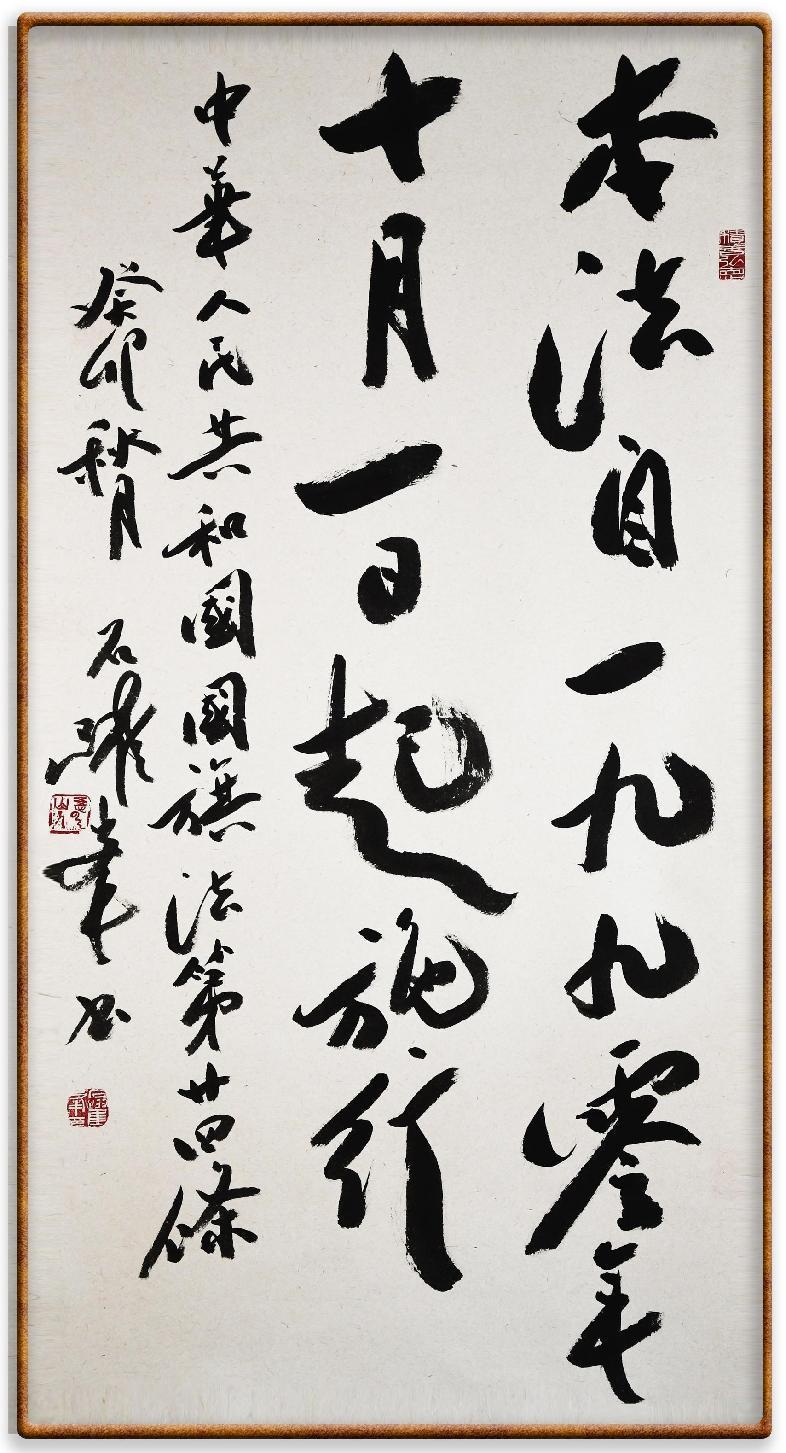 本法自一九九零年
十月一日起施行
中華人民共和國國旗法第廿四條
癸卯秋月 石躍軍書